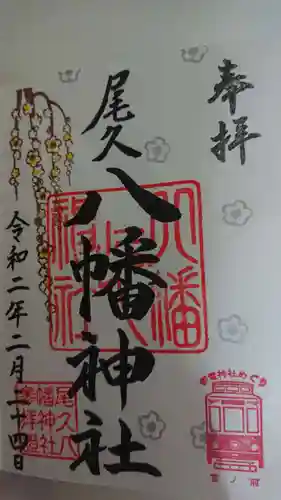 奉拝
尾久
八幡神社
八幡
神社
令和二年二月二十四日
尾久八
幡神社
都電神社めぐり
宮ノ前